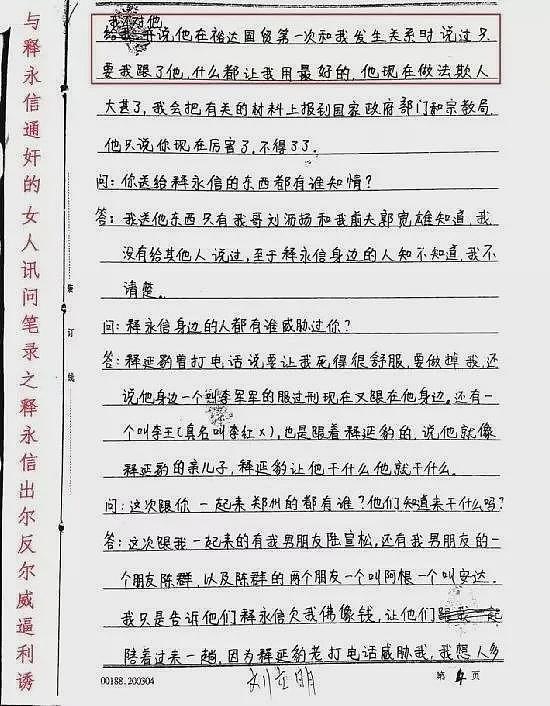 与释永信通奸的女人讯问笔录之释永信出尔反尔威逼利诱
我不对他
说他在裕达国贸第一次和我发生关系时说过只
要我跟了他,什么都让我用最好的,他现在做法欺人
大甚了,我会把有关的材料上报到国家政府部门和宗教局
他只说你现在厉害了,不得了了。
问:你送给释永信的东西都有谁知情?
答:我送他东西只有我哥刘沥扬和我前夫郭宽雄知道,我
没有给其他人说过,至于释永信身边的人知不知道,我不
清楚。
问:释永信身边的人都有谁威胁过你?
答:释延豹曾打电话说要让我死得很舒服,要做掉我,还
说他身边一个叫李军军的服过刑现在又跟在他身边。还有一
个叫李王(真名叫李红x),也是跟着释延豹的,说他就像
释延豹的亲儿子,释延豹让他干什么他就干什么。
问:这次跟你一起来郑州的都有谁?他们知道来干什么吗?
答:这次跟我一起来的有我男朋友陆宣松,还有我男朋友的一
个朋友陈群,以及陈群的两个朋友一个叫阿根一个叫安达。
我只是告诉他们释永信欠我佛像钱,让他们
陪着过来一趟,因为释延豹老打电话威胁我,我想人多
装订线
00188.200304
第4页